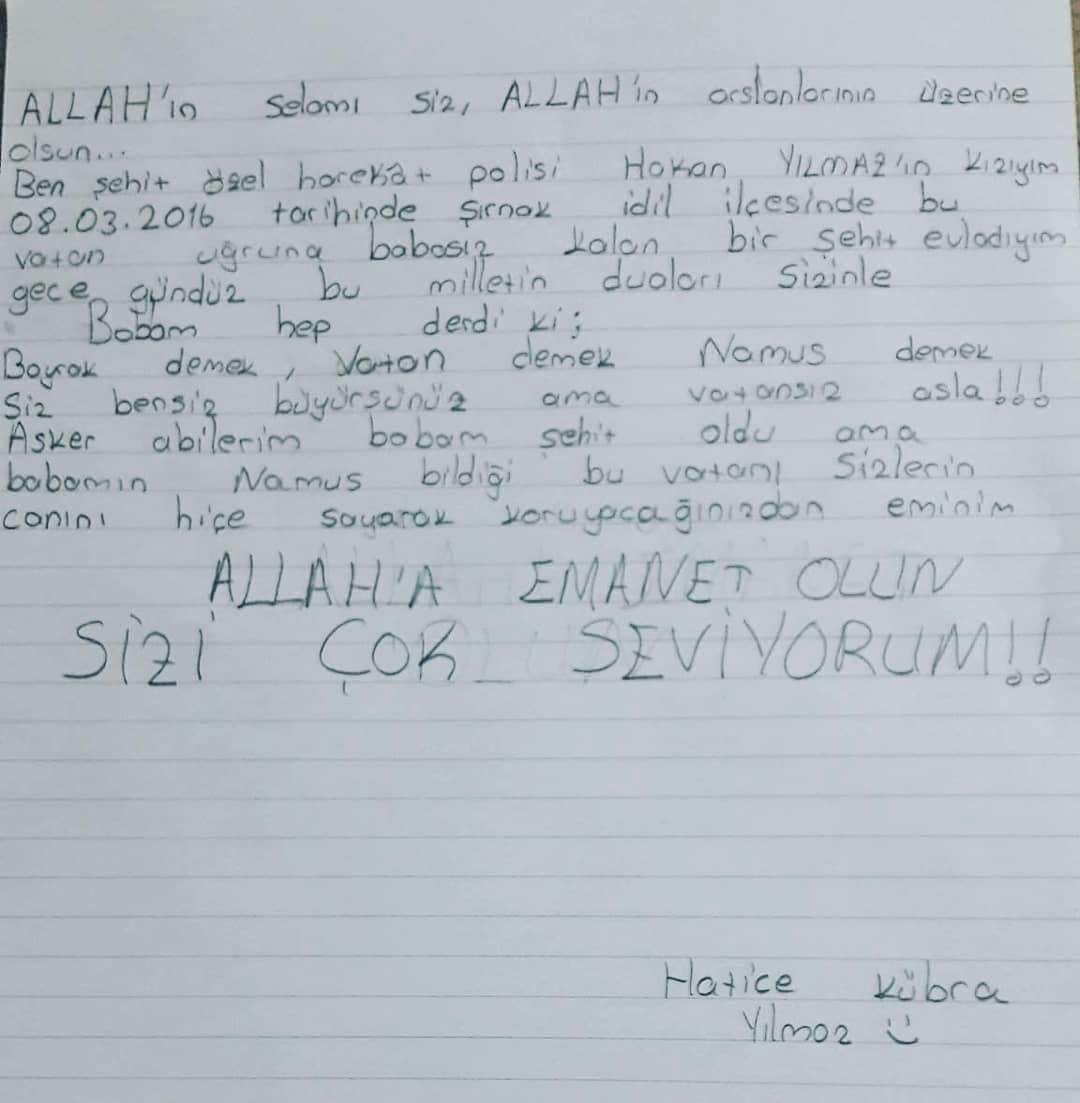 ALLAH'ın selamı siz, ALLAH'ın arslanlarının üzerine
olsun...
Ben şehit özel harekât polisi Hakan YILMAZ'ın kızıyım
08.03.2016 tarihinde Şırnak idil ilçesinde bu
vatan uğruna babasız kalan bir şehit evladıyım
gece gündüz bu milletin duaları sizinle
Babam hep derdi ki;
Bayrak demek, Vatan demek Namus demek
Siz bensiz büyürsünüz ama vatansız asla!!!
Asker abilerim babam şehit oldu ama
babamın Namus bildiği bu vatanı Sizlerin
canını hiçe sayarak koruyacağınızdan eminim
ALLAH'A EMANET OLUN
SİZİ ÇOK SEVİYORUM!!
Hatice Kübra
Yılmaz ü